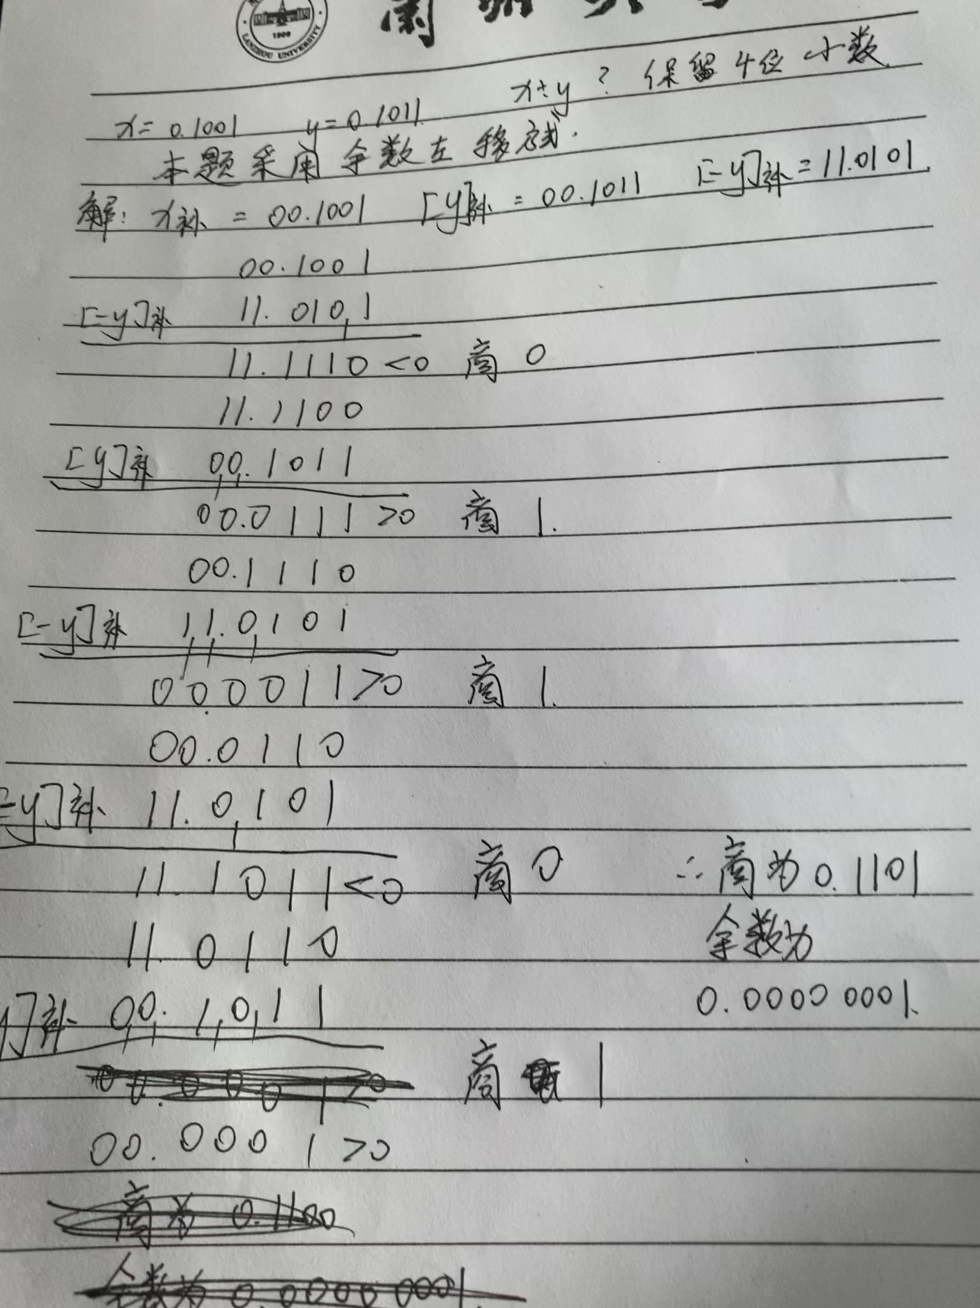 LANZHOU UNIVERSITY
1909
x=0.1001 y=0.1011 x÷y? 保留4位小数
本题采用余数左移法.
解: x补 = 00.1001 [y]补 = 00.1011 [-y]补 = 11.0101.
00.1001
[-y]补 11.0101
11.1110 <0 商 0
11.1100
[y]补 00.1011
00.0111 >0 商 1.
00.1110
[-y]补 11.0101
00.0011 >0 商 1.
00.0110
-y]补 11.0101
11.1011 <0 商 0 ∴商为 0.1101
11.0110 余数为
y]补 00.1011 0.0000 0001.
商 1
00.0001 >0